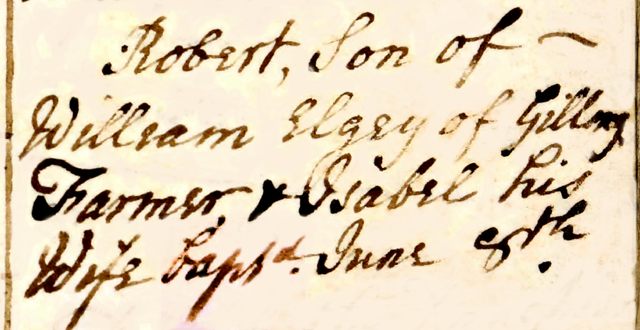 Robert, Son of ~
William Elgey of Gilling
Farmer, & Isabel his
Wife bapt.d June 8th.